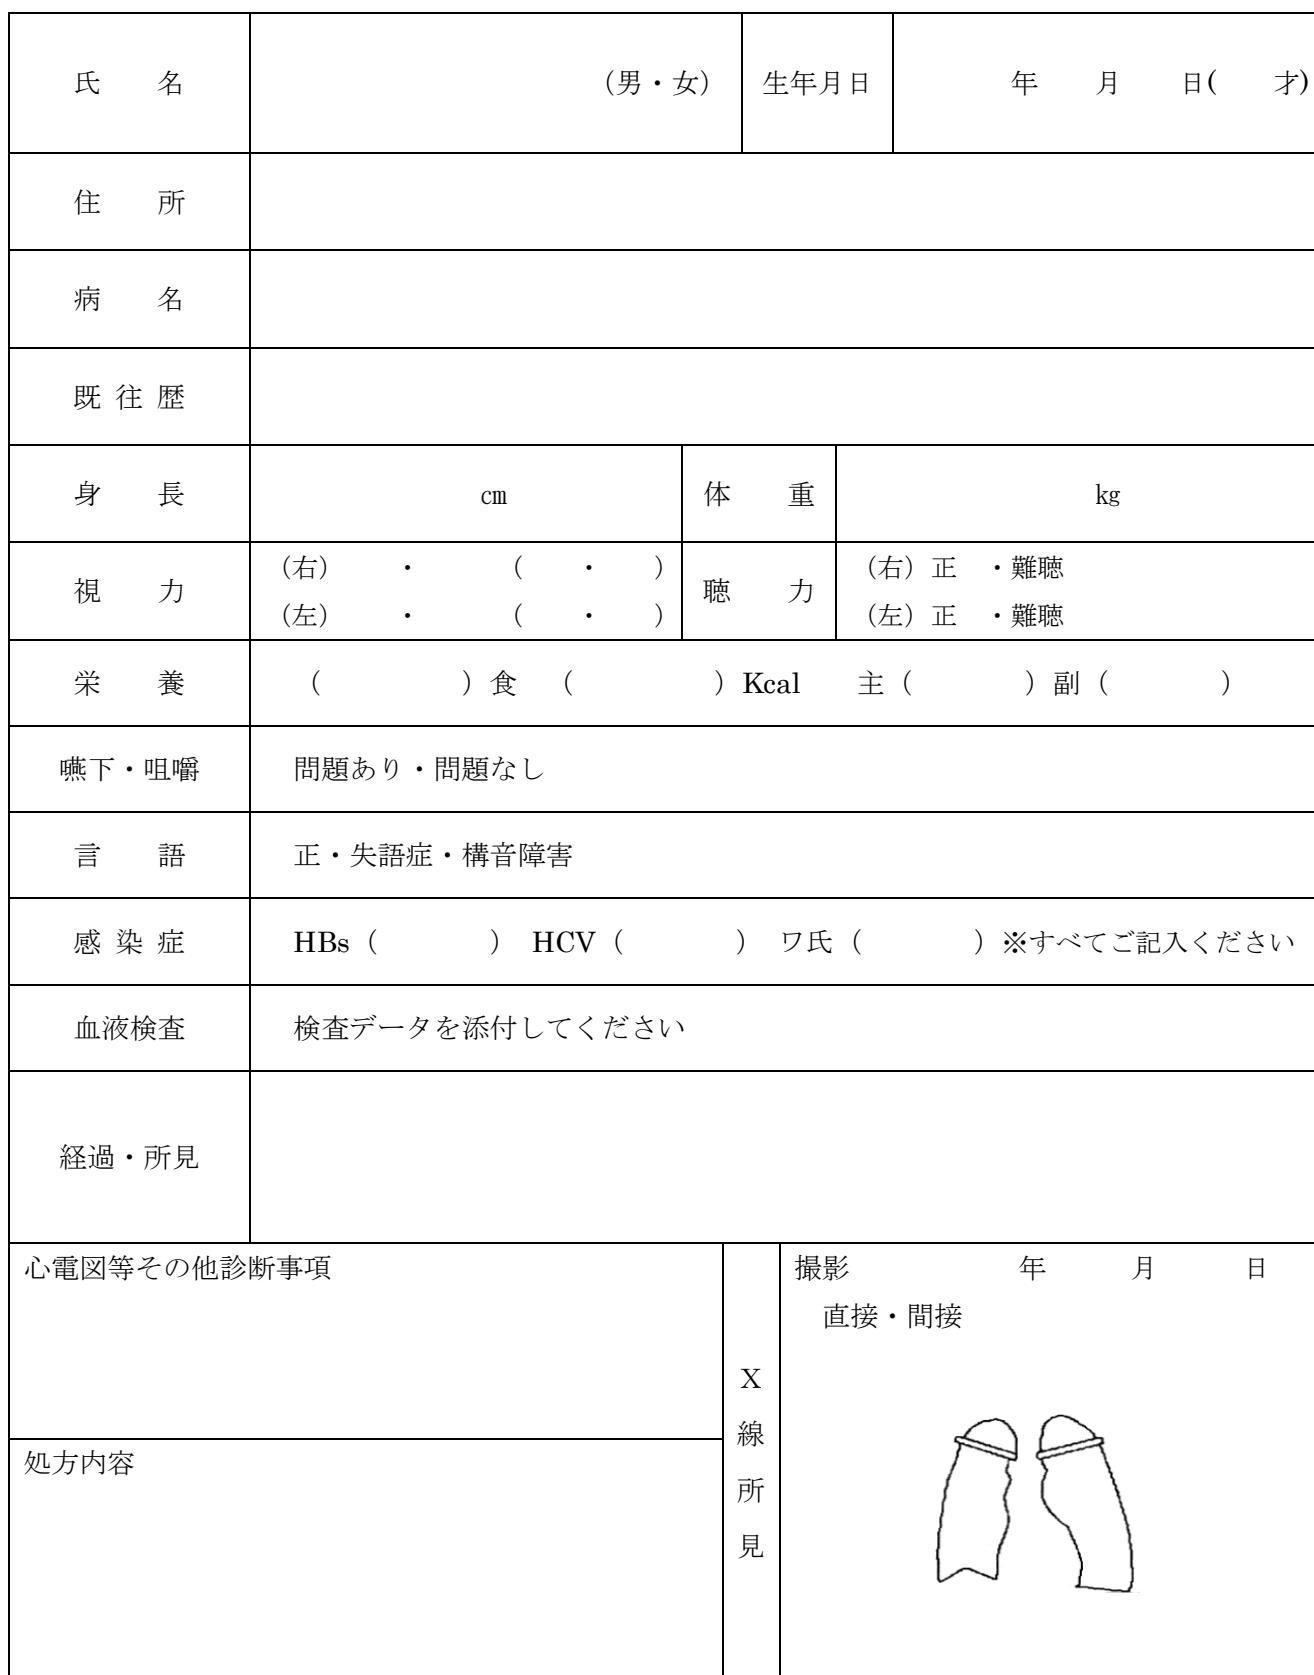 氏　　名　（男・女）　生年月日　年　　月　　日(　　才)
住　　所
病　　名
既 往 歴
身　　長　　㎝　　体　　重　　㎏
視　　力　（右）　・　（　・　）　聴　　力　（右）正　・難聴
（左）　・　（　・　）　（左）正　・難聴
栄　　養　（　　　　）食　（　　　　）Kcal　主（　　　　）副（　　　　）
嚥下・咀嚼　問題あり・問題なし
言　　語　正・失語症・構音障害
感 染 症　HBs（　　　　）　HCV（　　　　）　ワ氏（　　　　）※すべてご記入ください
血液検査　検査データを添付してください
経過・所見
心電図等その他診断事項
処方内容
X
線
所
見
撮影　　　年　　　月　　　日
直接・間接